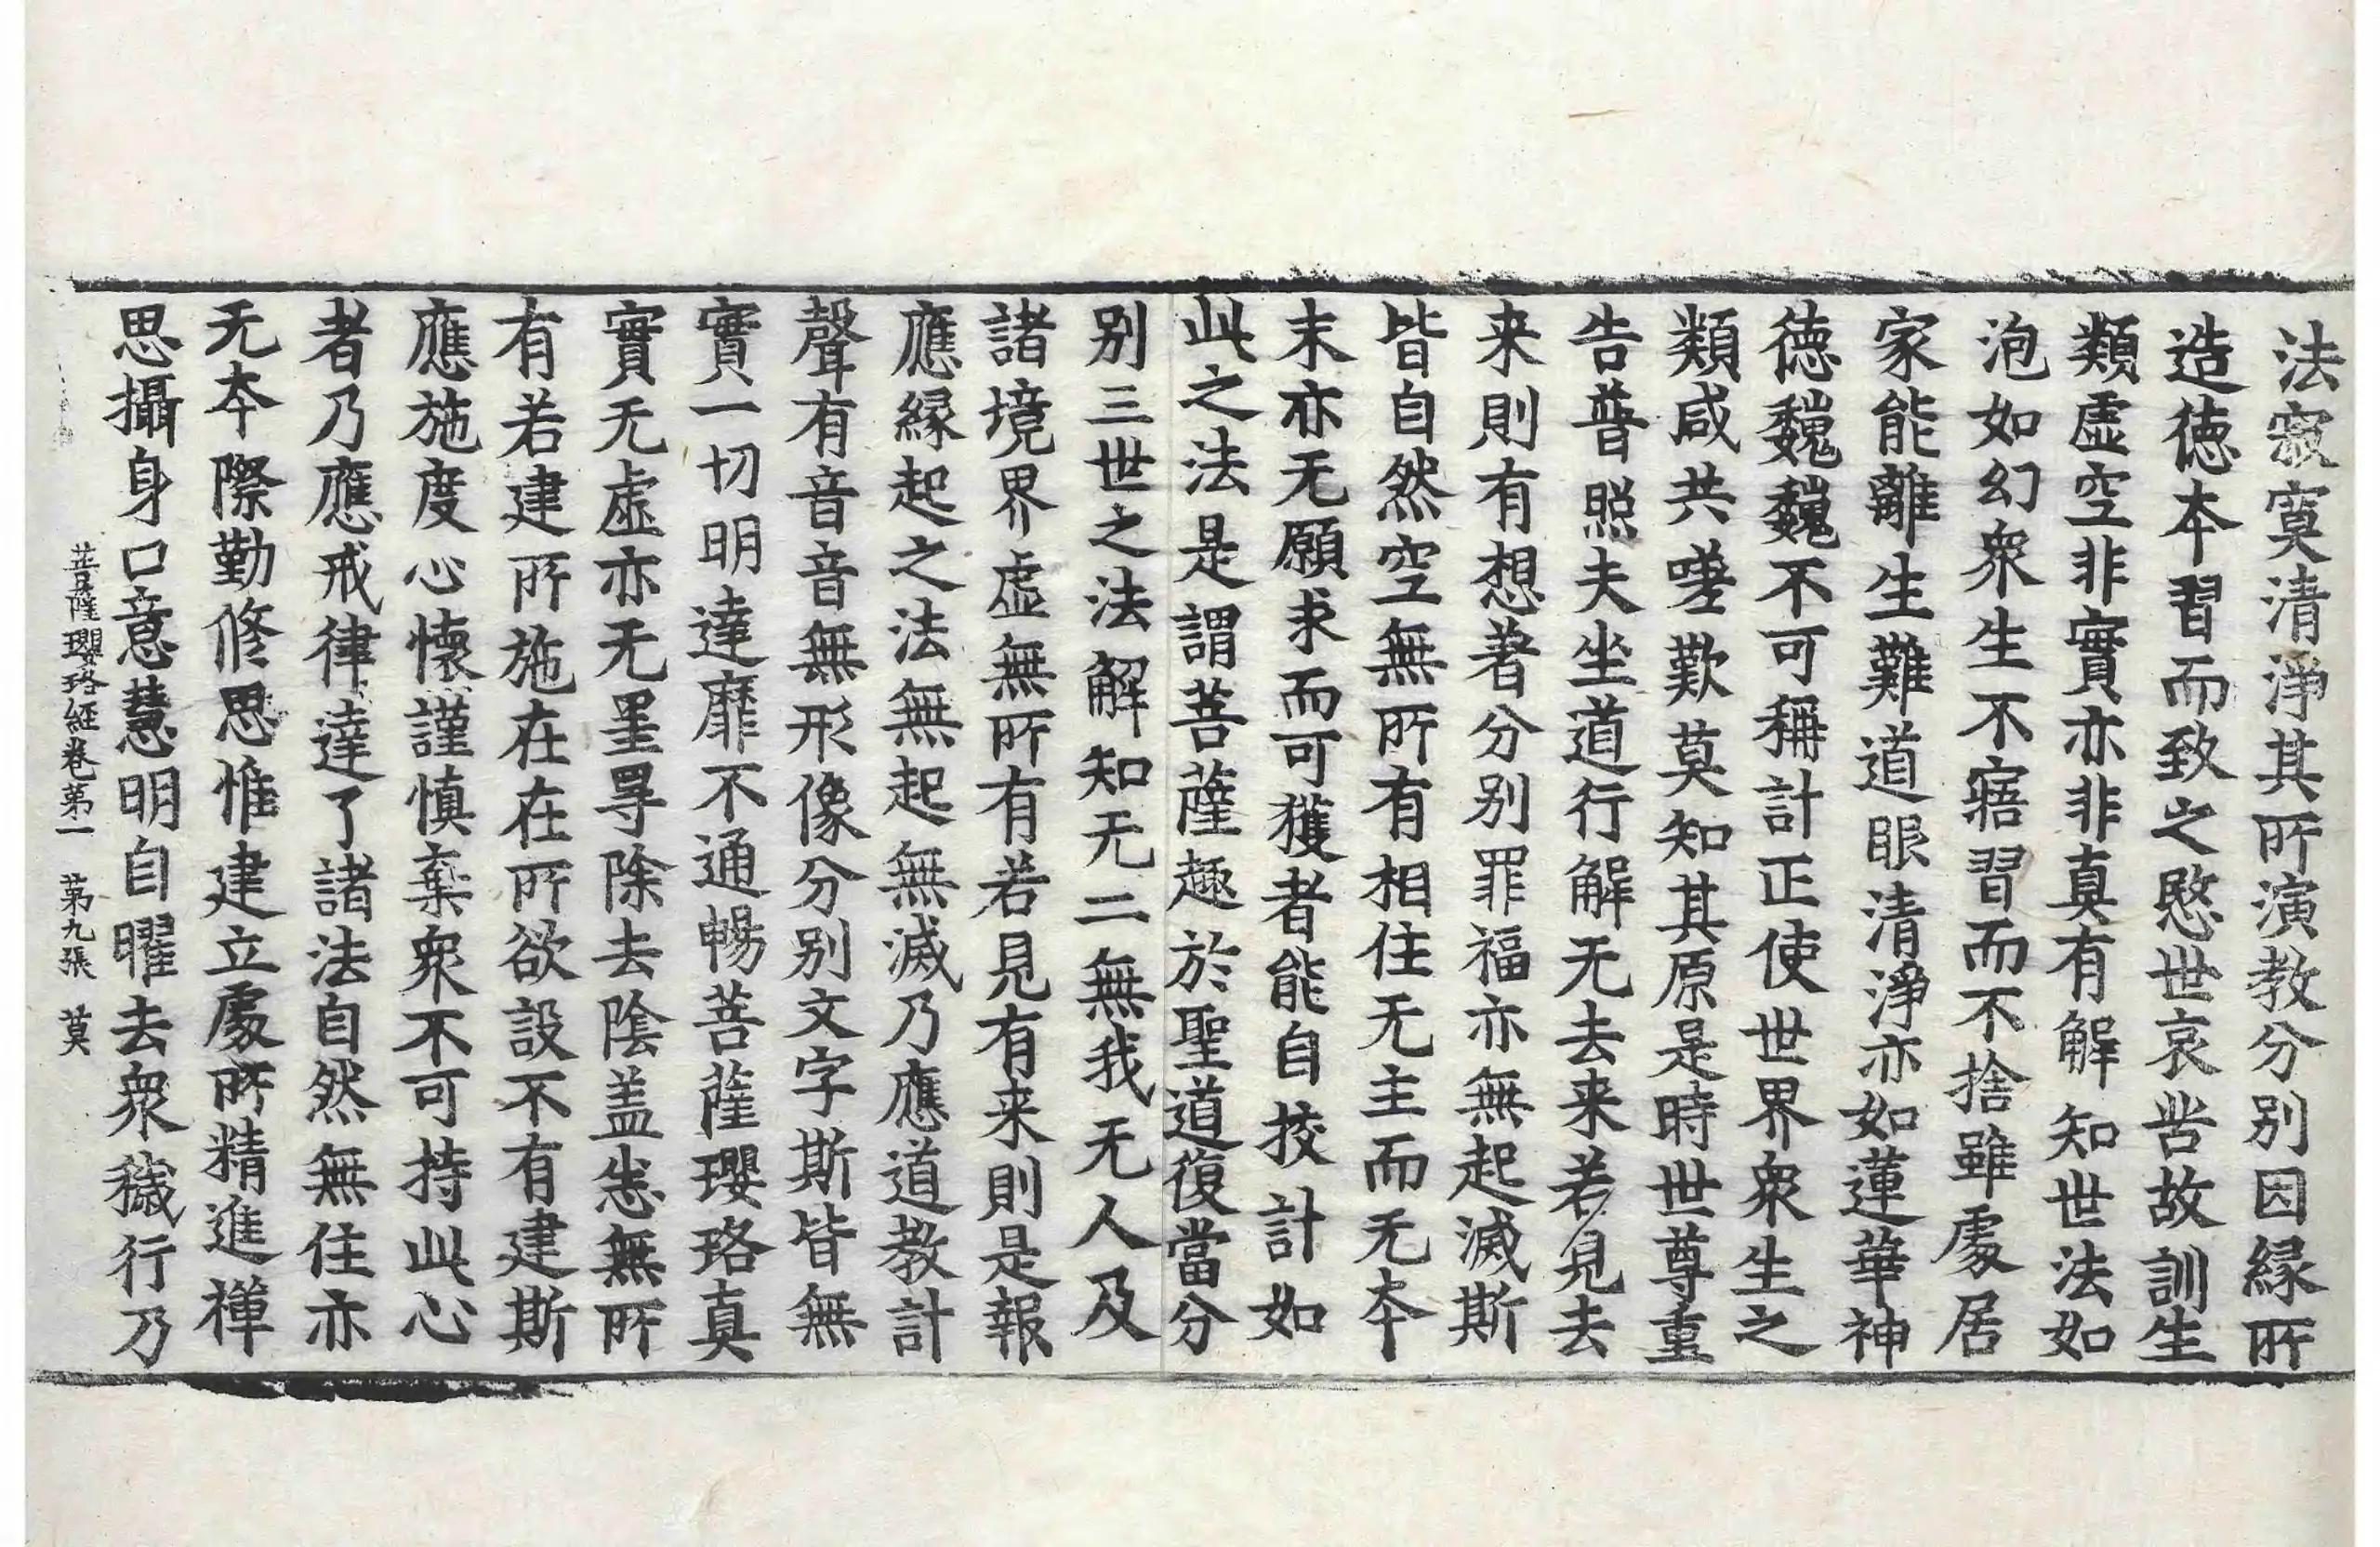 法寂寞清淨其所演教分別因緣所
造德本習而致之愍世哀苦故訓生
類虛空非實亦非真有解知世法如
泡如幻衆生不寤習而不捨雖處居
家能離生難道眼清淨亦如蓮華神
德巍巍不可稱計正使世界衆生之
類咸共嗟歎莫知其原是時世尊重
告普照夫坐道行解无去来若見去
来則有想著分別罪福亦無起滅斯
皆自然空無所有相住无主而无本
末亦无願求而可獲者能自挍計如
此之法是謂菩薩趣於聖道復當分
別三世之法解知无二無我无人及
諸境界虛無所有若見有来則是報
應緣起之法無起無滅乃應道教計
聲有音音無形像分別文字斯皆無
實一切明達靡不通暢菩薩瓔珞真
實无虛亦无罣㝵除去陰盖恚無所
有若建所施在在所欲設不有建斯
應施度心懷謹慎棄衆不可持此心
者乃應戒律達了諸法自然無住亦
无本際勤修思惟建立處所精進禪
思攝身口意慧明自曜去衆穢行乃
菩薩瓔珞經卷第一 第九張 莫